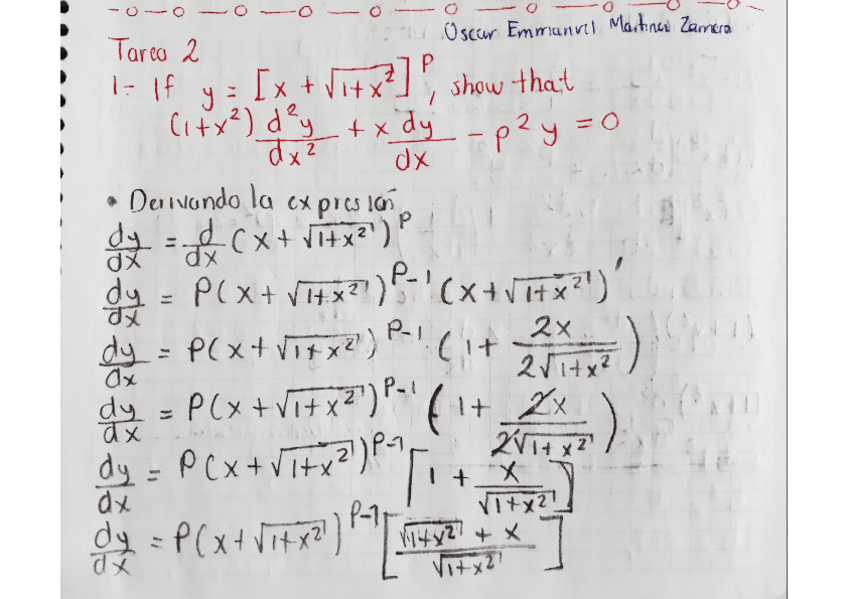 Oscar Emmanuel Martinez Zamora
Tarea 2
1- If y = [x + √(1+x²)]^p, show that
(1+x²) d²y/dx² + x dy/dx - p²y = 0
• Derivando la expresión
dy/dx = d/dx (x + √(1+x²))^p
dy/dx = P(x + √(1+x²))^(P-1) (x + √(1+x²))'
dy/dx = P(x + √(1+x²))^(P-1) (1 + 2x/(2√(1+x²)))
dy/dx = P(x + √(1+x²))^(P-1) (1 + 2x/(2√(1+x²)))
dy/dx = P(x + √(1+x²))^(P-1) [1 + x/√(1+x²)]
dy/dx = P(x + √(1+x²))^(P-1) [(√(1+x²) + x)/√(1+x²)]